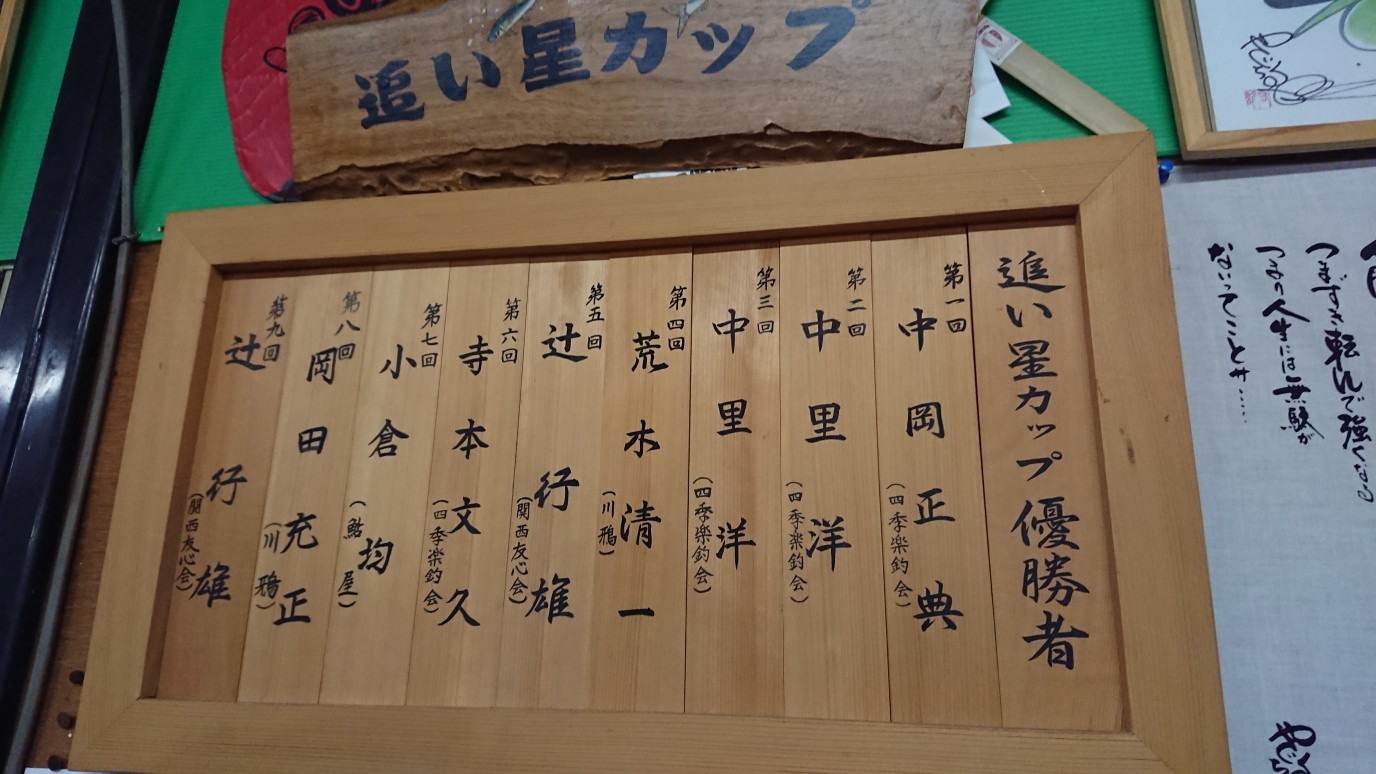 追い星カップ
追い星カップ優勝者
第一回
中岡正典
(四季楽釣会)
第二回
中里洋
(四季楽釣会)
第三回
中里洋
(四季楽釣会)
第四回
荒木清一
(川鴉)
第五回
辻行雄
(関西友心会)
第六回
寺本文久
(四季楽釣会)
第七回
小倉均
(鮎屋)
第八回
岡田充正
(川鴉)
第九回
辻行雄
(関西友心会)
つまずき転んで強くなる
つまりの人生には無駄が
ないってことサ……